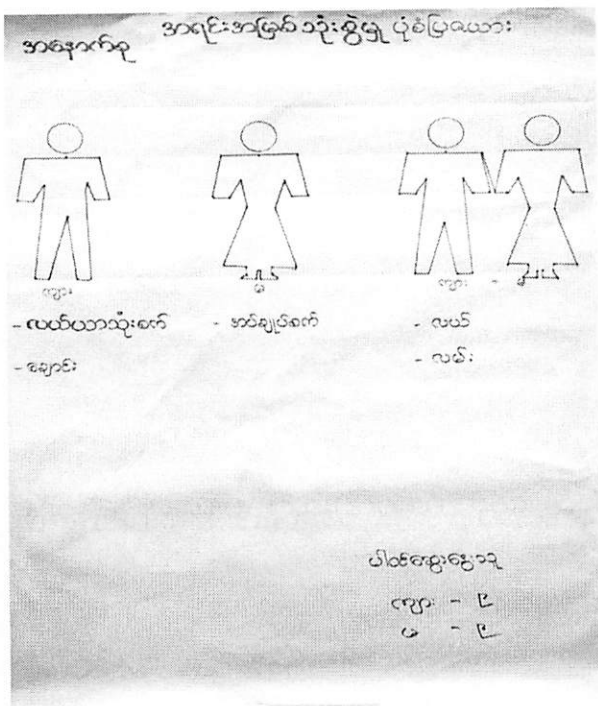 အနောက်စု
အရင်းအမြစ် သုံးစွဲမှု ပုံစံပြဇယား
ကျား
မ
ကျား - မ
- လယ်ယာသုံးစက်
- အပ်ချုပ်စက်
- လယ်
- ချောင်း
- လမ်း
ပါဝင်ဆွေးနွေးသူ
ကျား - ၉
မ - ၉